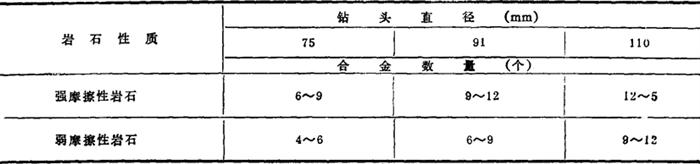 钻头直径(mm)
岩石性质
75 91 110
合金数量(个)
强摩擦性岩石 6～9 9～12 12～5
弱摩擦性岩石 4～6 6～9 9～12